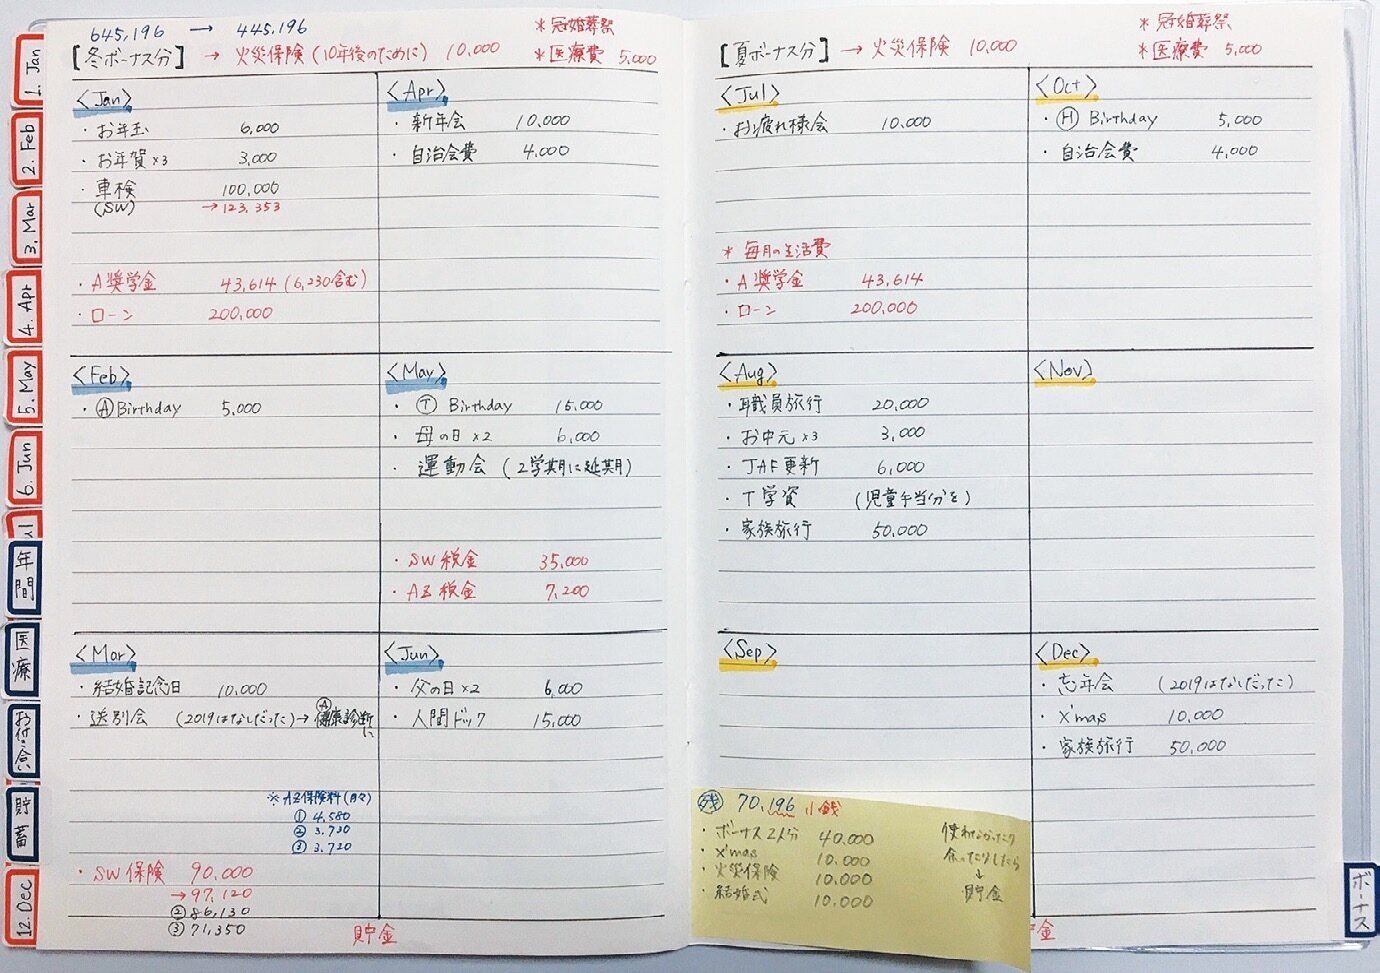 645,196 → 445,196
[冬ボーナス分] → 火災保険(10年後のために) 10,000
*冠婚葬祭
*医療費 5,000
<Jan>
・お年玉 6,000
・お年賀×3 3,000
・車検 100,000
(SW) →123,353
・A奨学金 43,614(6,230含む)
・ローン 200,000
<Feb>
・Ⓐ Birthday 5,000
<Mar>
・結婚記念日 10,000
・送別会 (2019はなしだった)→Ⓐ健康診断に
※AZ保険料(月々)
① 4,580
② 3,730
③ 3,720
・SW保険 90,000
→97,120
②86,130
③71,350
<Apr>
・新年会 10,000
・自治会費 4,000
<May>
・Ⓣ Birthday 15,000
・母の日×2 6,000
・運動会 (2学期に延期)
・SW税金 35,000
・AZ税金 7,200
<Jun>
・父の日×2 6,000
・人間ドック 15,000
貯金
[夏ボーナス分] → 火災保険 10,000
*冠婚葬祭
*医療費 5,000
<Jul>
・お疲れ様会 10,000
*毎月の生活費
・A奨学金 43,614
・ローン 200,000
<Aug>
・職員旅行 20,000
・お中元×3 3,000
・JAF更新 6,000
・T学資 (児童手当分を)
・家族旅行 50,000
<Sep>
<Oct>
・Ⓗ Birthday 5,000
・自治会費 4,000
<Nov>
<Dec>
・忘年会 (2019はなしだった)
・X'mas 10,000
・家族旅行 50,000
㊙残 70,196 小銭
・ボーナス2人分 40,000
・X'mas 10,000
・火災保険 10,000
・結婚式 10,000
使わなかったり
余ったりしたら
↓
貯金
金
1. Jan
2. Feb
3. Mar
4. Apr
5. May
6. Jun
ul
年間
医療
お付き合い
貯蓄
12. Dec
ボーナス